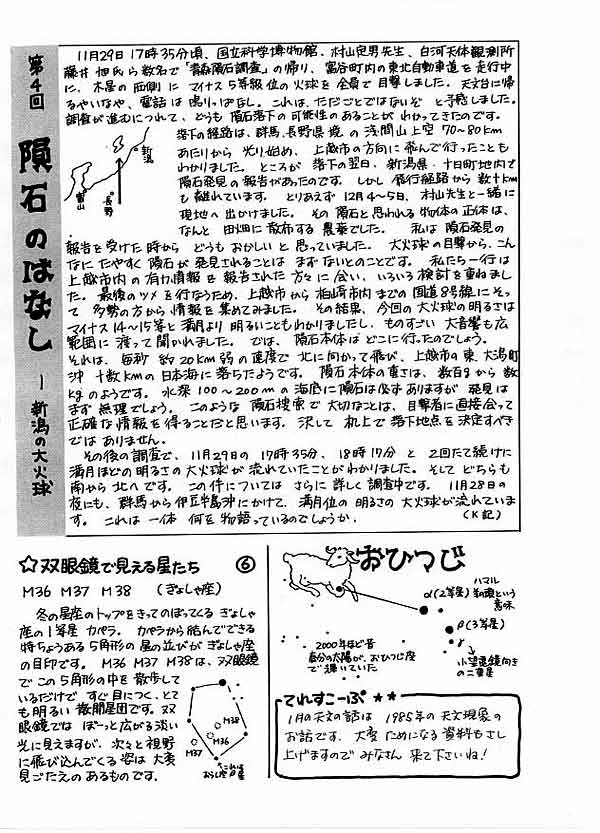 第4回 隕石のはなし ―新潟の大火球
11月29日17時35分頃、国立科学博物館、村山定男先生、白河天体観測所
藤井 旭氏ら数名で「青森隕石調査」の帰り、富谷町内の東北自動車道を走行中
に、木星の西側に マイナス5等級位の火球を全員で目撃しました。天文台に帰
るやいなや、電話は鳴りっぱなし。これは、ただごとではないぞ と予感しました。
調査が進むにつれて、どうも隕石落下の可能性のあることがわかってきたのです。
落下の経路は、群馬、長野県境の浅間山上空70〜80km
あたりから光り始め、上越市の方向に飛んで行ったことも
わかりました。ところが 落下の翌日、新潟県 十日町地内で
隕石発見の報告があったのです。しかし飛行経路から数十km
も離れています。とりあえず12月4〜5日、村山先生と一緒に
現地へ出かけました。その隕石と思われる物体の正体は、
なんと 田畑に散布する農薬でした。 私は隕石発見の
新潟
長野
富山
報告を受けた時から どうもおかしいと思っていました。大火球の目撃から、こん
なに たやすく隕石が発見されることは まずないとのことです。私たち一行は
上越市内の有力情報を報告された方々に会い、いろいろ検討を重ねまし
た。最後のツメを行なうため、上越市から柏崎市内までの国道8号線にそっ
て 多勢の方から情報を集めてみました。その結果、今回の大火球の明るさは
マイナス14〜15等と満月より明るいこともわかりましたし、ものすごい大音響も広
範囲に渡って聞かれました。では、隕石本体はどこに行ったのでしょう。
それは、毎秒 約20km弱の速度で北に向かって飛び、上越市の東、大潟町
沖 十数kmの日本海に落ちたようです。隕石本体の重さは、数百gから数
kgのようです。水深100〜200mの海底に隕石は必ずありますが 発見は
まず無理でしょう。このような隕石捜索で大切なことは、目撃者に直接会って
正確な情報を得ることだと思います。決して机上で落下地点を決定すべき
ではありません。
その後の調査で、11月29日の17時35分、18時17分 と 2回たて続けに
満月ほどの明るさの大火球が流れていたことがわかりました。そしてどちらも
南から北へです。この件については さらに詳しく調査中です。11月28日の
夜にも、群馬から伊豆半島沖にかけて、満月位の明るさの大火球が流れていま
す。これは一体 何を物語っているのでしょうか。 (K記)
☆双眼鏡で見える星たち ⑥
M36 M37 M38 (ぎょしゃ座)
冬の星座のトップをきってのぼってくる ぎょしゃ
座の1等星 カペラ。カペラから結んでできる
特ちょうある5角形の星の並びがぎょしゃ座
の目印です。M36 M37 M38は、双眼鏡
で この5角形の中を散歩して
いるだけで すぐ目につく、とて
も明るい散開星団です。双
眼鏡では ぼーっと広がる淡い
光に見えますが、次々と視野
に飛び込んでくる姿は 大変
見ごたえのあるものです。
M38
M36
M37
おひつじ
ハマル
α(2等星) 羊の頭という
意味
β(3等星)
γ
小望遠鏡向き
の二重星
2000年ほど昔
春分の太陽が、おひつじ座
で輝いていた
てれすこーぷ ★★
1月の天文の話は 1985年の天文現象の
お話です。大変 ためになる資料もさし
上げますので みなさん 来て下さいね!